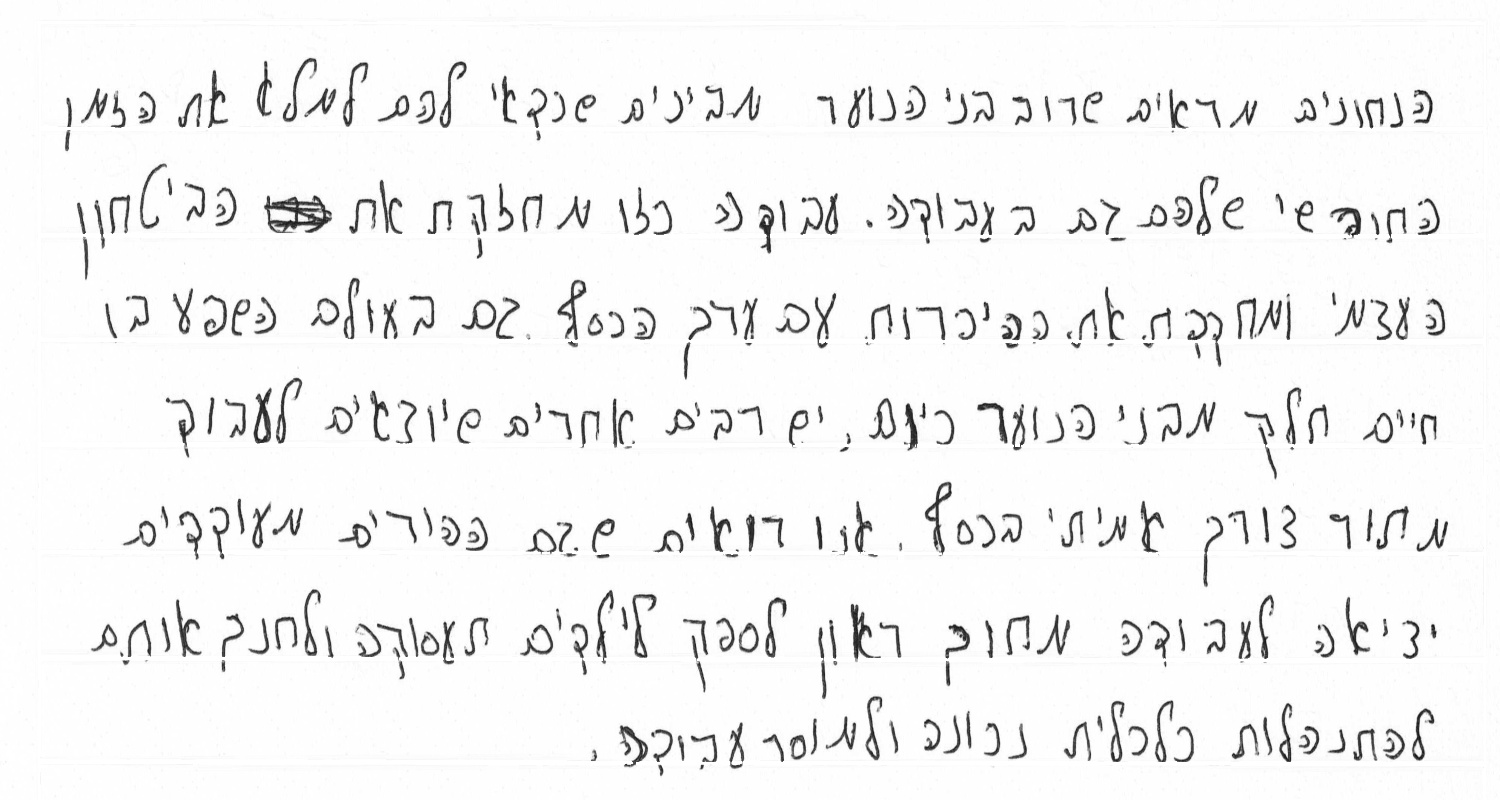 הנחונים מראים שרוב בני הנוער מבינים שכדאי להם למלא את הזמן
החודשי שלהם גם בעבודה. עבודה כזו מחזקת את הביטחון
העצמי ומחדדת את ההיכרות עם ערך הכסף. גם בעולם השפע בו
חיים חלק מבני הנוער כיום, יש רבים אחרים שיוצאים לעבוד
מתוך צורך אמיתי בכסף. אנו רואים שגם ההורים מעודדים
יציאה לעבודה מתוך ראון לספק לילדים תעסוקה ולחנך אותם
להתנהלות כלכלית נכונה ולמוסר עבודה.